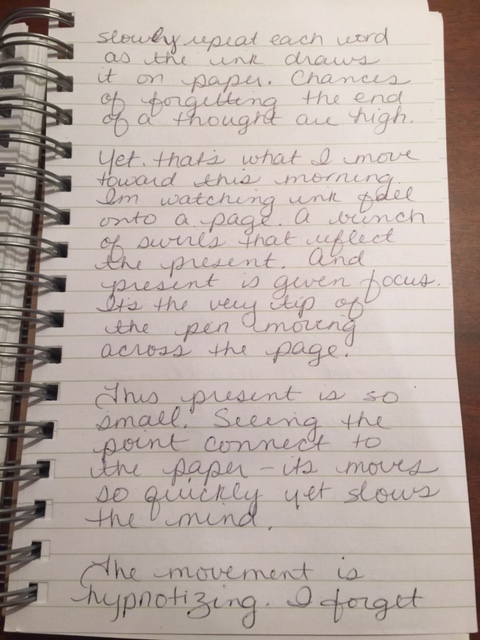 slowly repeat each word
as the ink draws
it on paper. Chances
of forgetting the end
of a thought are high.
Yet. that's what I move
toward this morning
Im watching ink fall
onto a page. A bunch
of swirls that reflect
the present. And
present is given focus.
Its the very tip of
the pen moving
across the page.
This present is so
small. Seeing the
point connect to
the paper - its moves
so quickly yet slows
the mind.
The movement is
hypnotizing. I forget